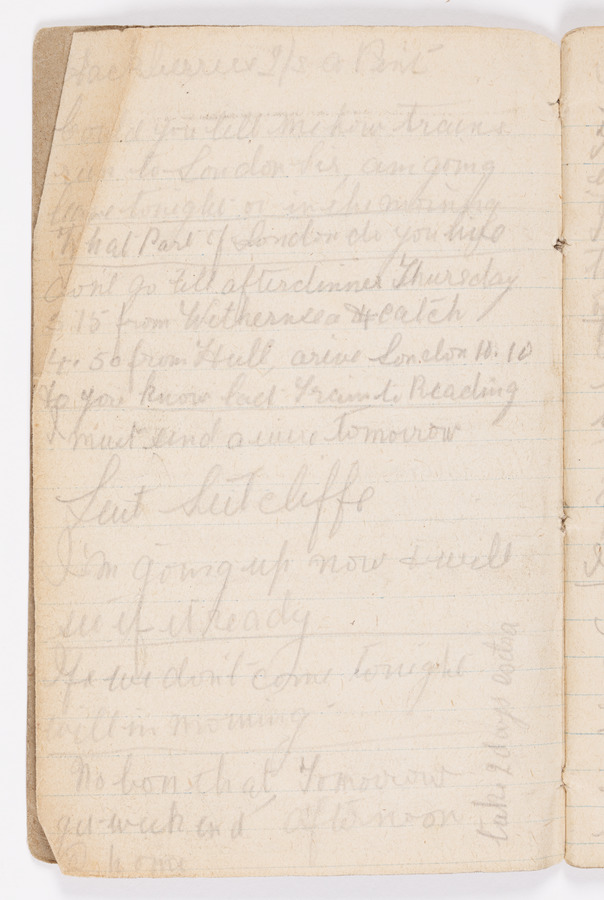 Blackberries 2/s a Pint
Could you tell me how trains
run to London his, am going
home tonight or in the morning
What Part of London do you live
don't go till after dinner Thursday
5.15 from Withernsea & catch
50 from Hull, arive London 10.10
Do you know last Train to Reading
I must send a wire tomorrow
Lieut Sutcliffe
I'm going up now & will
see if it ready
If we don't come tonight
will in morning
No Tomorrow
week end afternoon
home
take 2 days extra